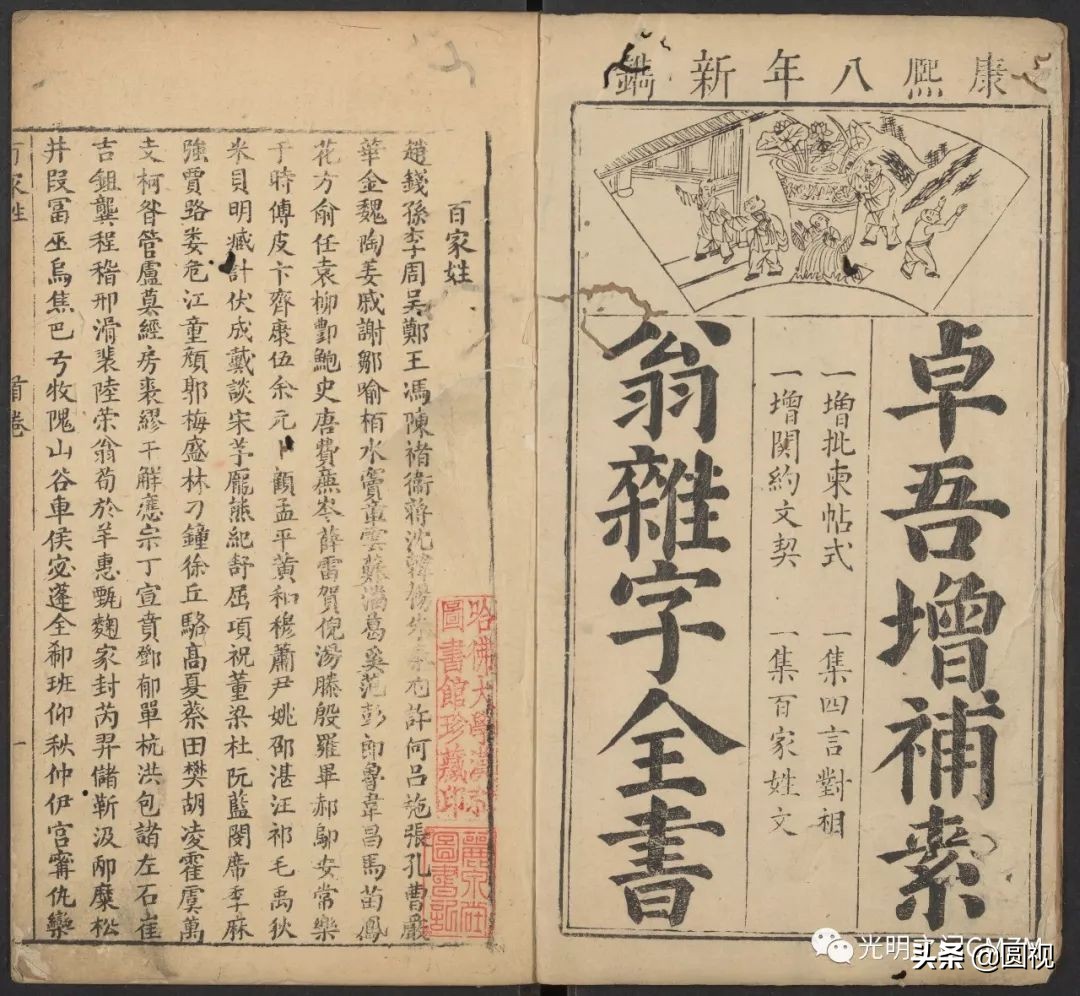 康熙八年新鐫
卓吾增補素
一增批柬帖式 一集四言對相
一增関約文契 一集百家姓文
翁雜字全書
百家姓
趙錢孫李周吳鄭王馮陳褚衛蔣沈韓楊朱秦尤許何呂施張孔曹嚴
華金魏陶姜戚謝鄒喻栢水竇章雲蘇潘葛奚范彭郎魯韋昌馬苗鳳
花方俞任袁柳酆鮑史唐費廉岑薛雷賀倪湯滕殷羅畢郝鄔安常樂
于時傅皮卞齊康伍余元卜顧孟平黃和穆蕭尹姚邵湛汪祁毛禹狄
米貝明臧計伏成戴談宋茅龐熊紀舒屈項祝董梁杜阮藍閔席季麻
強賈路婁危江童顏郭梅盛林刁鐘徐丘駱高夏蔡田樊胡凌霍虞萬
支柯昝管盧莫經房裘繆干解應宗丁宣賁鄧郁單杭洪包諸左石崔
吉鈕龔程嵇邢滑裴陸荣翁荀於羊惠甄麴家封芮羿儲靳汲邴糜松
井段富巫烏焦巴弓牧隗山谷車侯宓蓬全郗班仰秋仲伊宮寗仇欒
百家姓 首卷 一
哈佛大學漢和
圖書館珍藏印
光明之门GMZM
头条 @圆视